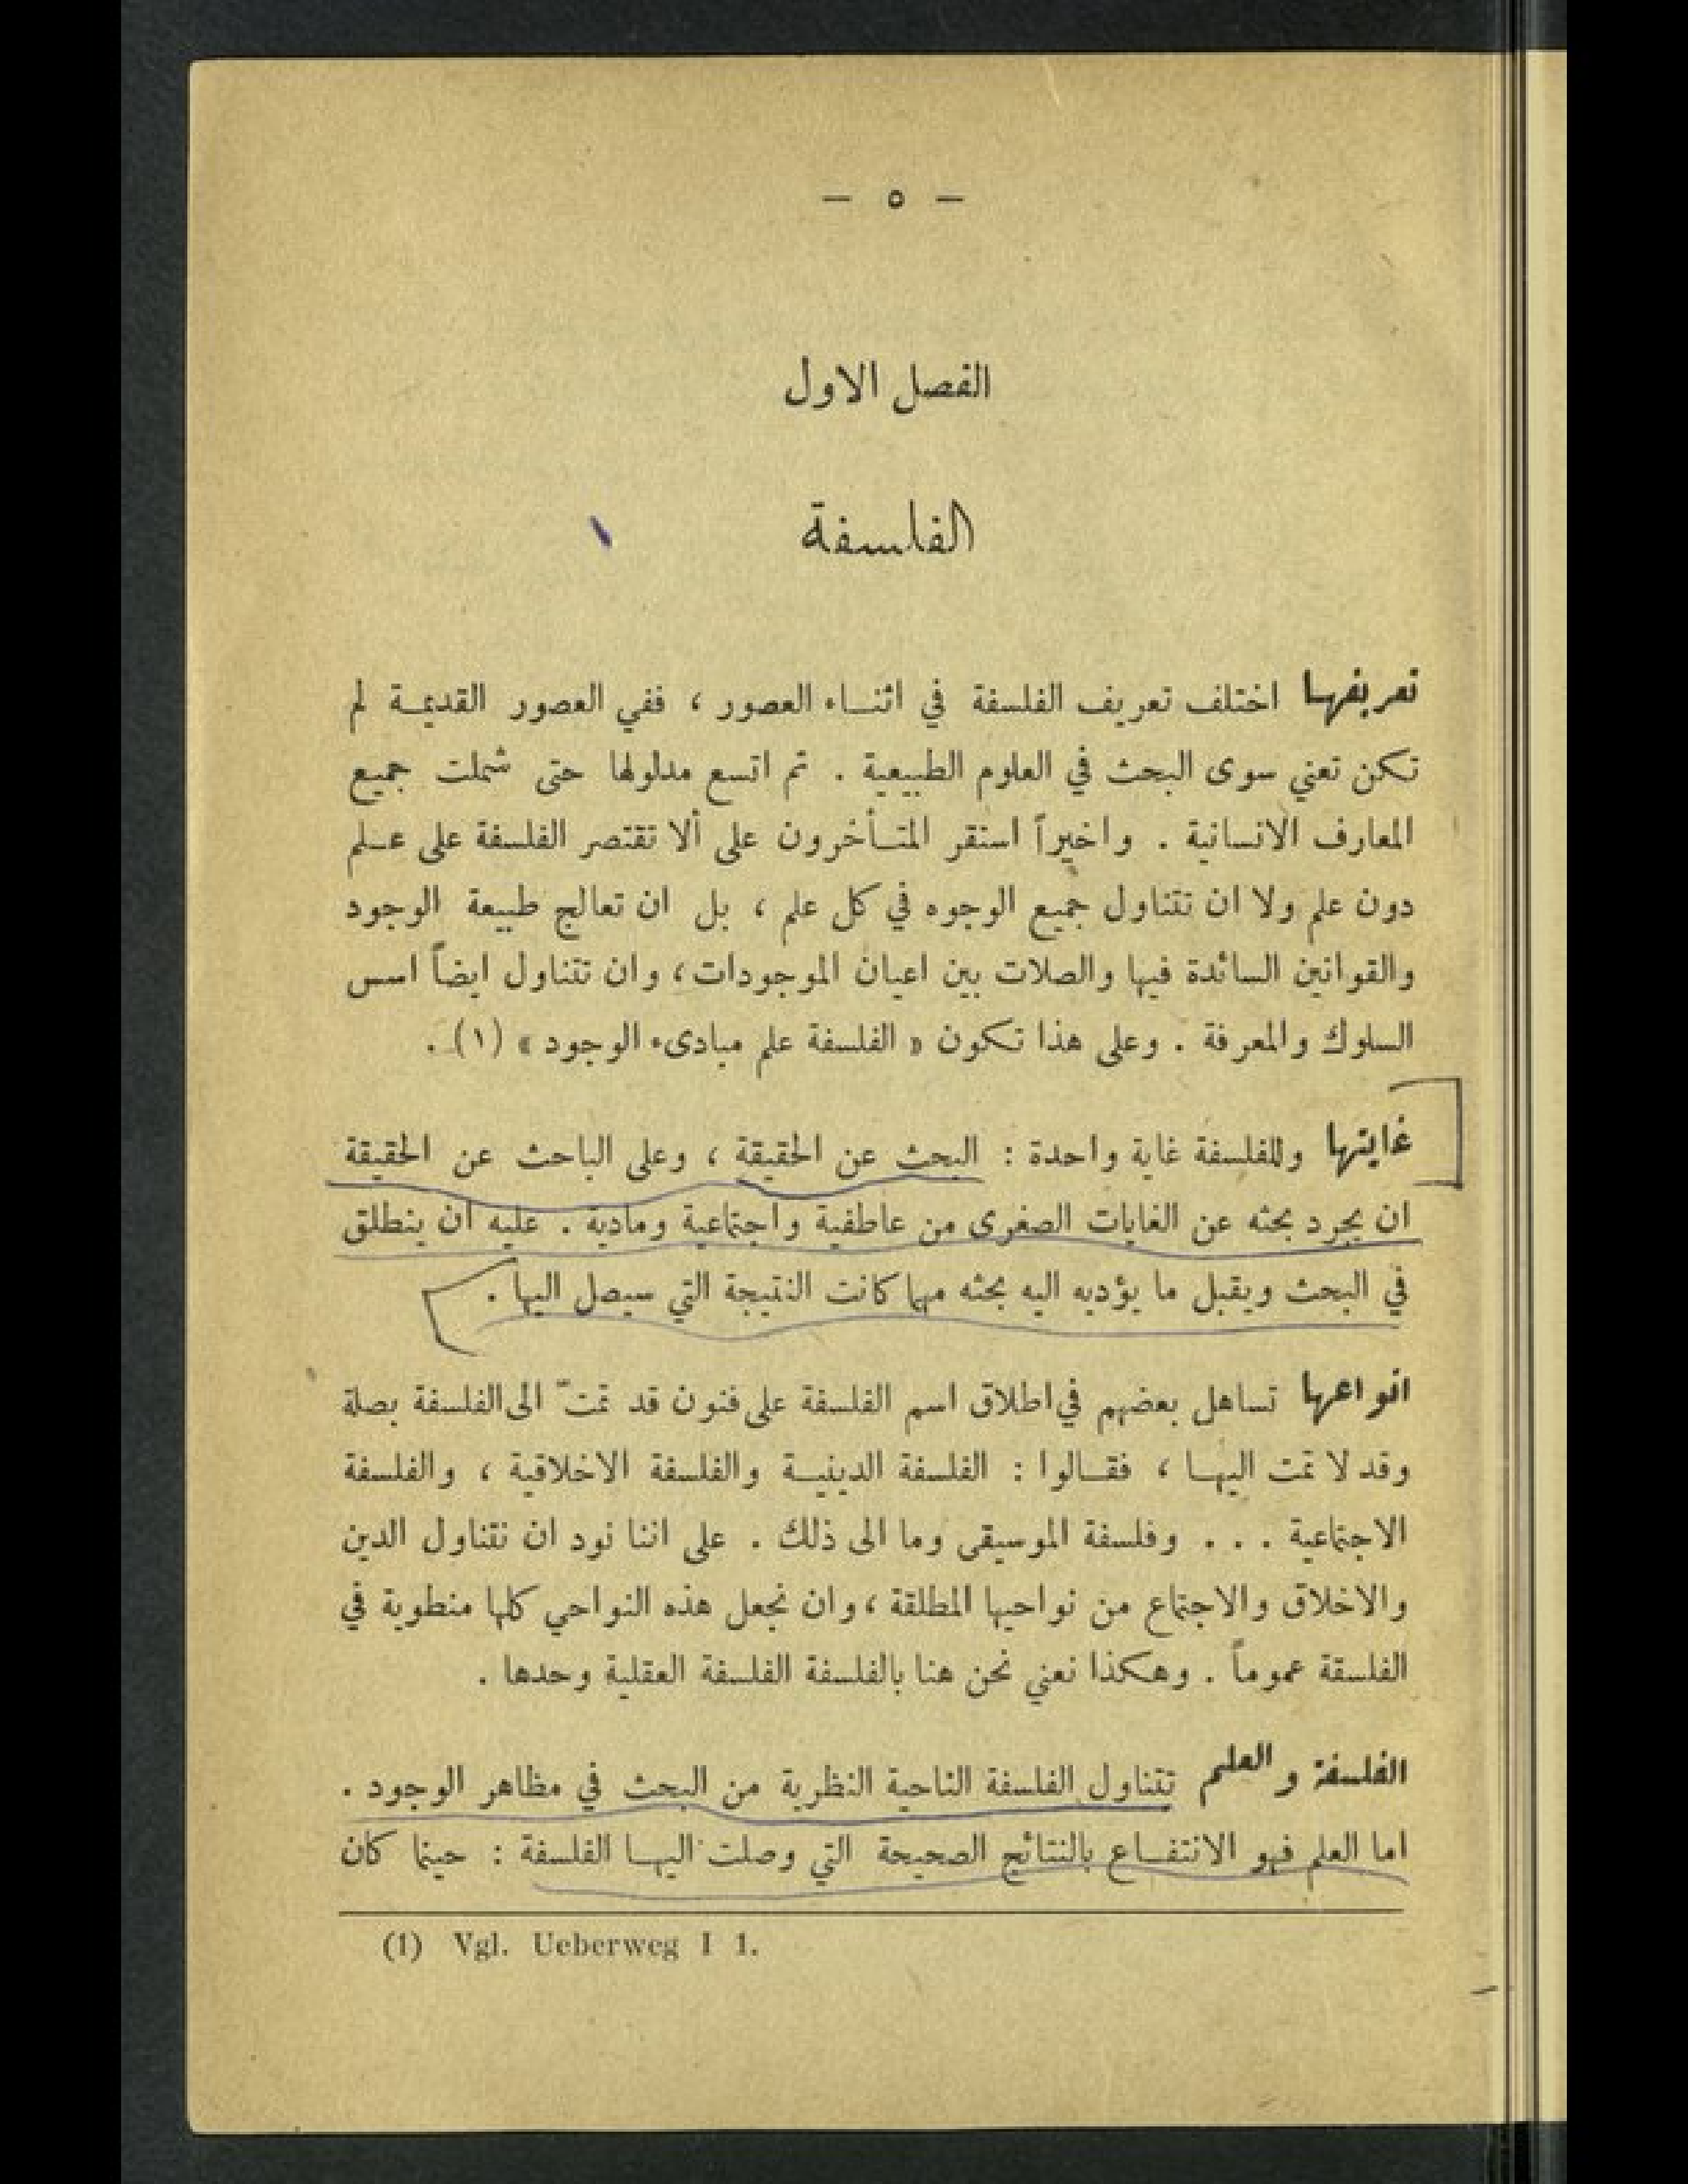 — ٥ —
الفصل الاول
الفلسفة
تعريفها اختلف تعريف الفلسفة في اثناء العصور ، ففي العصور القديمة لم
تكن تعني سوى البحث في العلوم الطبيعية . ثم اتسع مدلولها حتى شملت جميع
المعارف الانسانية . واخيراً استقر المتأخرون على ألا تقتصر الفلسفة على علم
دون علم ولا ان تتناول جميع الوجوه في كل علم ، بل ان تعالج طبيعة الوجود
والقوانين السائدة فيها والصلات بين اعيان الموجودات ، وان تتناول ايضاً اسس
السلوك والمعرفة . وعلى هذا تكون « الفلسفة علم مبادىء الوجود » (١) .
غايتها وللفلسفة غاية واحدة : البحث عن الحقيقة ، وعلى الباحث عن الحقيقة
ان يجرد بحثه عن الغايات الصغرى من عاطفية واجتماعية ومادية . عليه ان ينطلق
في البحث ويقبل ما يؤديه اليه بحثه مهما كانت النتيجة التي سيصل اليها .
انواعها تساهل بعضهم في اطلاق اسم الفلسفة على فنون قد تمتّ الى الفلسفة بصلة
وقد لا تمت اليها ، فقالوا : الفلسفة الدينية والفلسفة الاخلاقية ، والفلسفة
الاجتماعية . . . وفلسفة الموسيقى وما الى ذلك . على اننا نود ان نتناول الدين
والاخلاق والاجتماع من نواحيها المطلقة ، وان نجعل هذه النواحي كلها منطوية في
الفلسفة عموماً . وهكذا نعني نحن هنا بالفلسفة الفلسفة العقلية وحدها .
الفلسفة والعلم تتناول الفلسفة الناحية النظرية من البحث في مظاهر الوجود .
اما العلم فهو الانتفاع بالنتائج الصحيحة التي وصلت اليها الفلسفة : حينما كان
(1) Vgl. Ueberweg I 1.